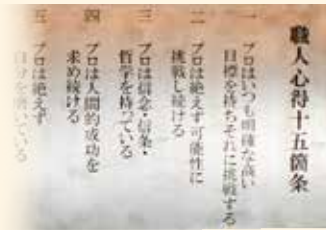 職人心得十五箇条
一 プロはいつも明確な高い
目標を持ちそれに挑戦する
二 プロは絶えず可能性に
挑戦し続ける
三 プロは信念・信条・
哲学を持っている
四 プロは人間的成功を
求め続ける
五 プロは絶えず
自分を磨いている